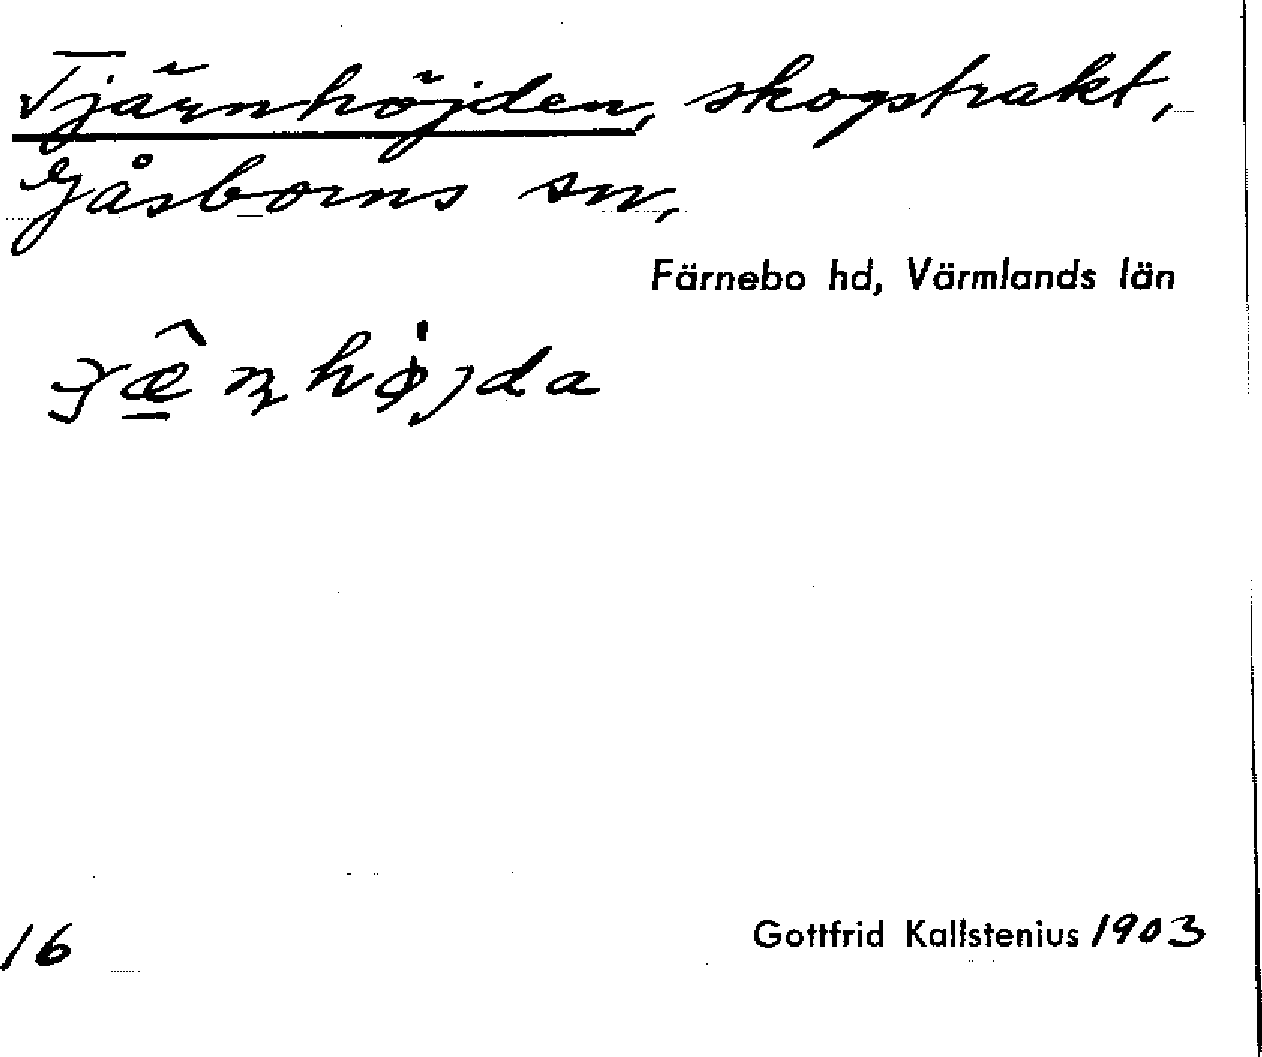 Tjärnhöjden, skogstrakt,
Gåsborns sn,
Färnebo hd, Värmlands län
16
Gottfrid Kallstenius 1903